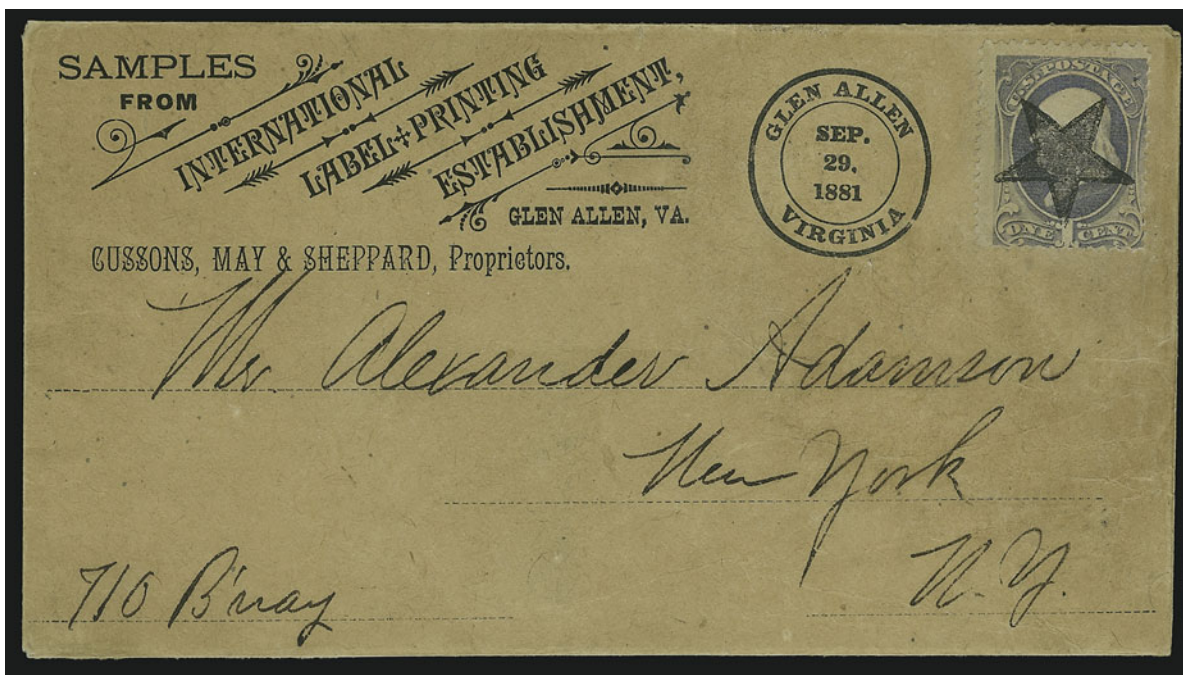 SAMPLES
FROM
INTERNATIONAL
LABEL + PRINTING
ESTABLISHMENT,
GLEN ALLEN, VA.
CUSSONS, MAY & SHEPPARD, Proprietors.
GLEN ALLEN
SEP.
29.
1881
VIRGINIA
U.S. POSTAGE
ONE CENT
Mr. Alexander Adamson
New York
N. Y.
710 B'way